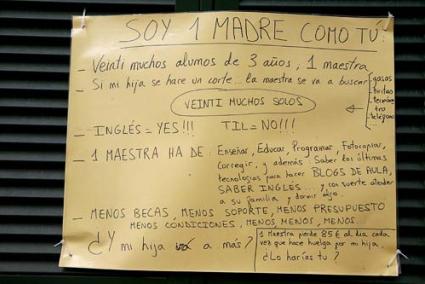 SOY 1 MADRE COMO TÚ.
- Veinti muchos alumos de 3 años, 1 maestra
- Si mi hija se hace un corte... la maestra se va a buscar
gasas
tiritas
teléfono
VEINTI MUCHOS SOLOS
- INGLÉS = YES!!! TIL = NO!!!
- 1 MAESTRA HA DE: Enseñar, Educar, Programar, Fotocopiar,
Corregir, y además: Saber las últimas
tecnologías para hacer BLOGS DE AULA,
SABER INGLÉS... y con suerte atender
a su familia y dormir algo.
- MENOS BECAS, MENOS SOPORTE, MENOS PRESUPUESTO
MENOS CONDICIONES, MENOS, MENOS, MENOS...
¿Y mi hija va a más?
1 Maestra pierde 85 € al día cada
vez que hace huelga por mi hija.
¿Lo harías tu?